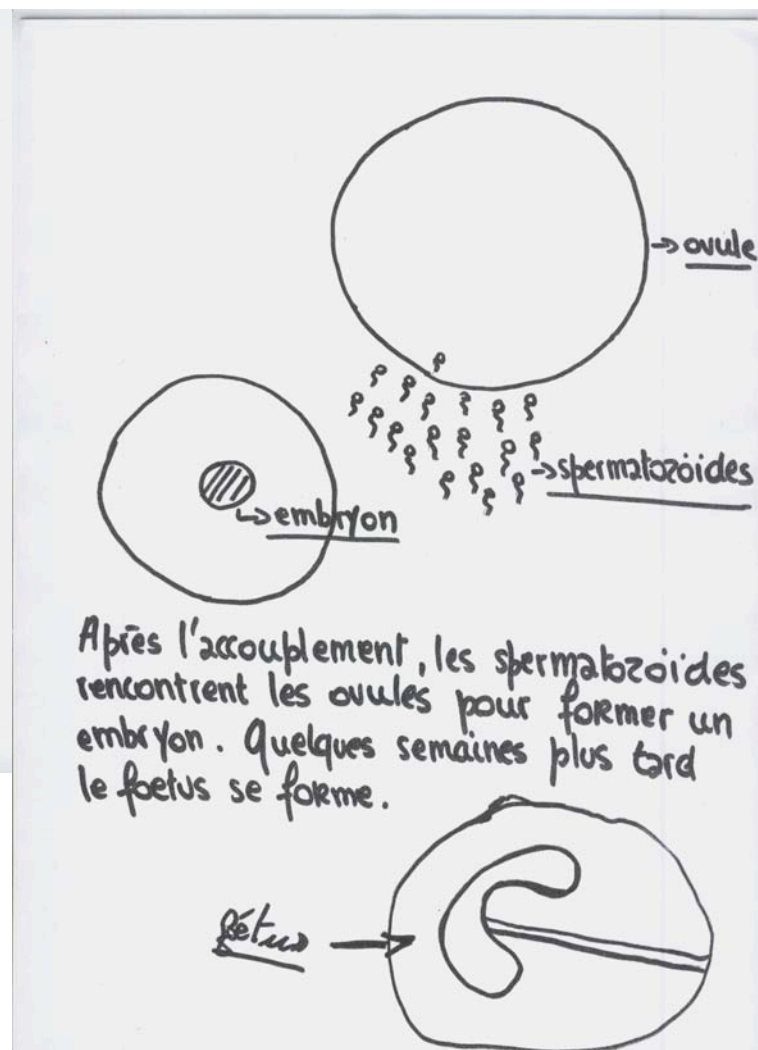 → ovule
→ spermatozoïdes
↳ embryon
Après l'accouplement, les spermatozoïdes
rencontrent les ovules pour former un
embryon. Quelques semaines plus tard
le foetus se forme.
fétus